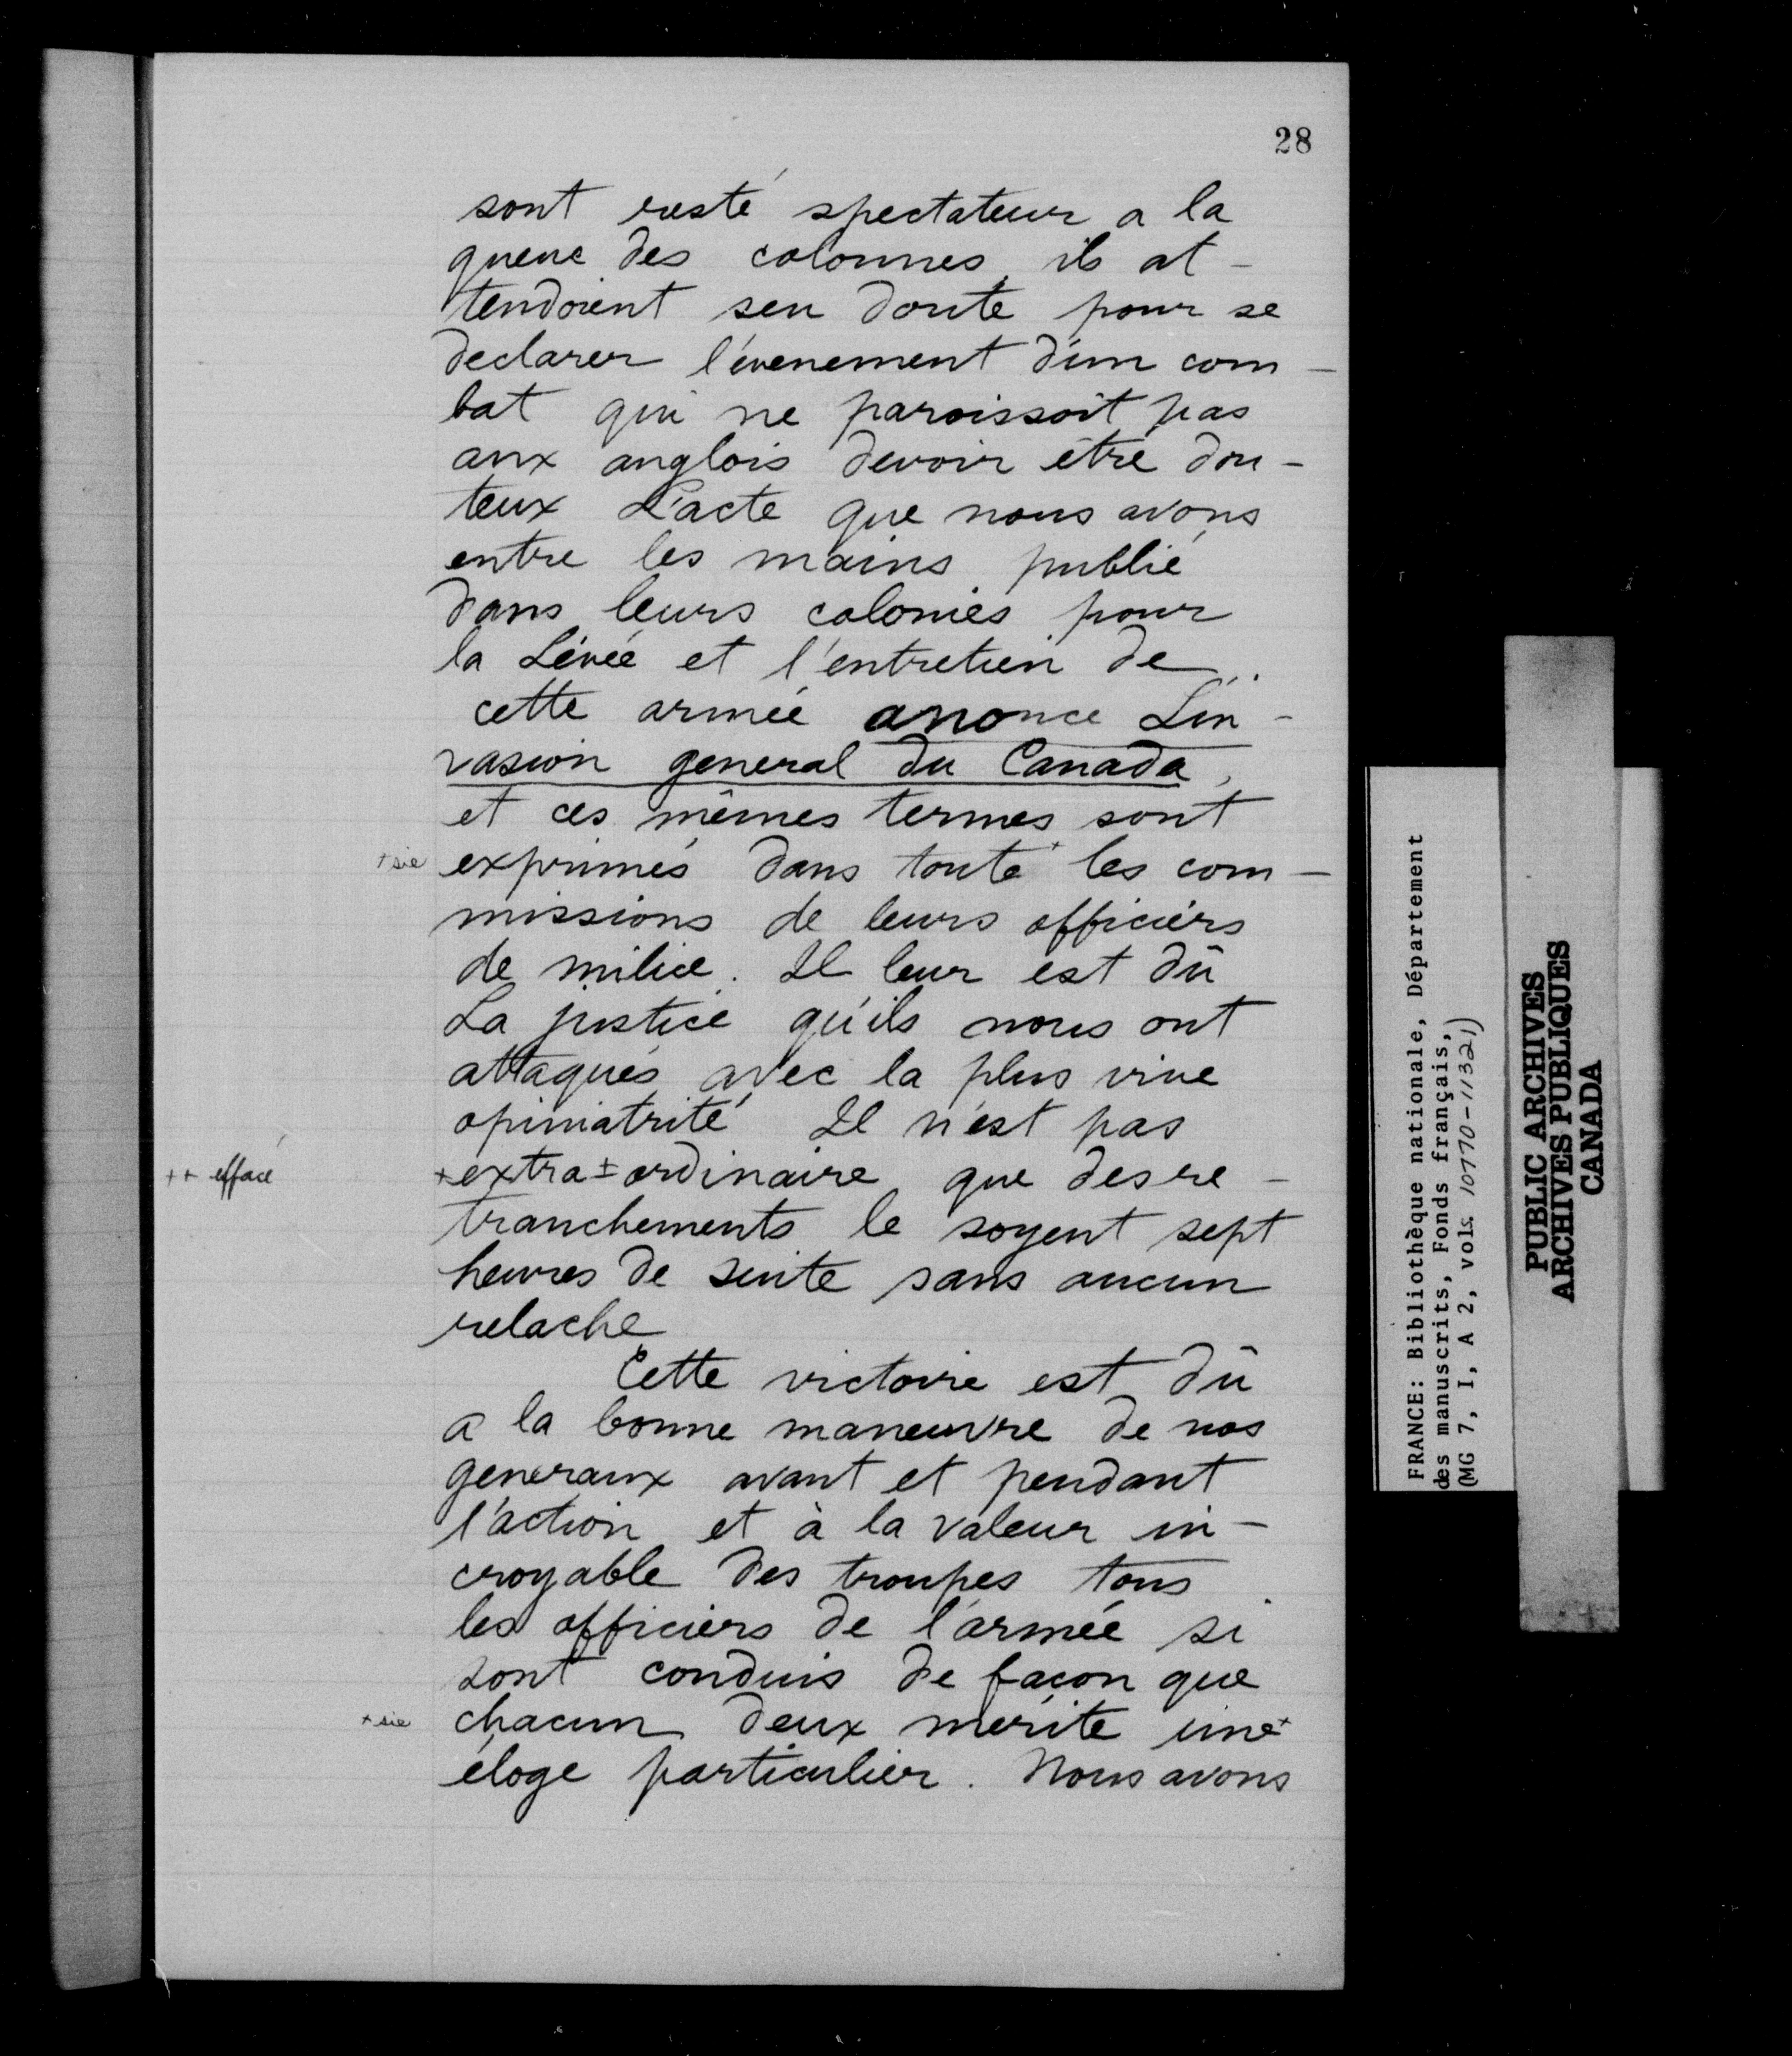 28
sont resté spectateur a la
queue des colonnes, ils at-
tendoient sen doute pour se
declarer l'évenement d'un com-
bat qui ne paroissoit pas
aux anglois devoir être dou-
teux L'acte que nous avons
entre les mains publié
dans leurs colonies pour
la Lévée et l'entretien de
cette armée anonce L'in-
vasion general du Canada,
et ces mêmes termes sont
+ sic exprimés dans toute + les com-
missions de leurs officiers
de milice. Il leur est dû
La justice qu'ils nous ont
attaqués avec la plus vive
opiniatrité Il n'est pas
++ effacé +extra±ordinaire que des re-
tranchements le soyent sept
heures de suite sans aucun
relache
Cette victoire est dû
a la bonne maneuvre de nos
generaux avant et pendant
l'action et à la valeur in-
croyable des troupes tous
les officiers de l'armée si
sont conduis de façon que
+ sic chacun deux mérite une +
éloge particulier. Nous avons
FRANCE: Bibliothèque nationale, Département
des manuscrits, Fonds français,
(MG 7, I, A 2, vols. 10770-11321)
PUBLIC ARCHIVES
ARCHIVES PUBLIQUES
CANADA